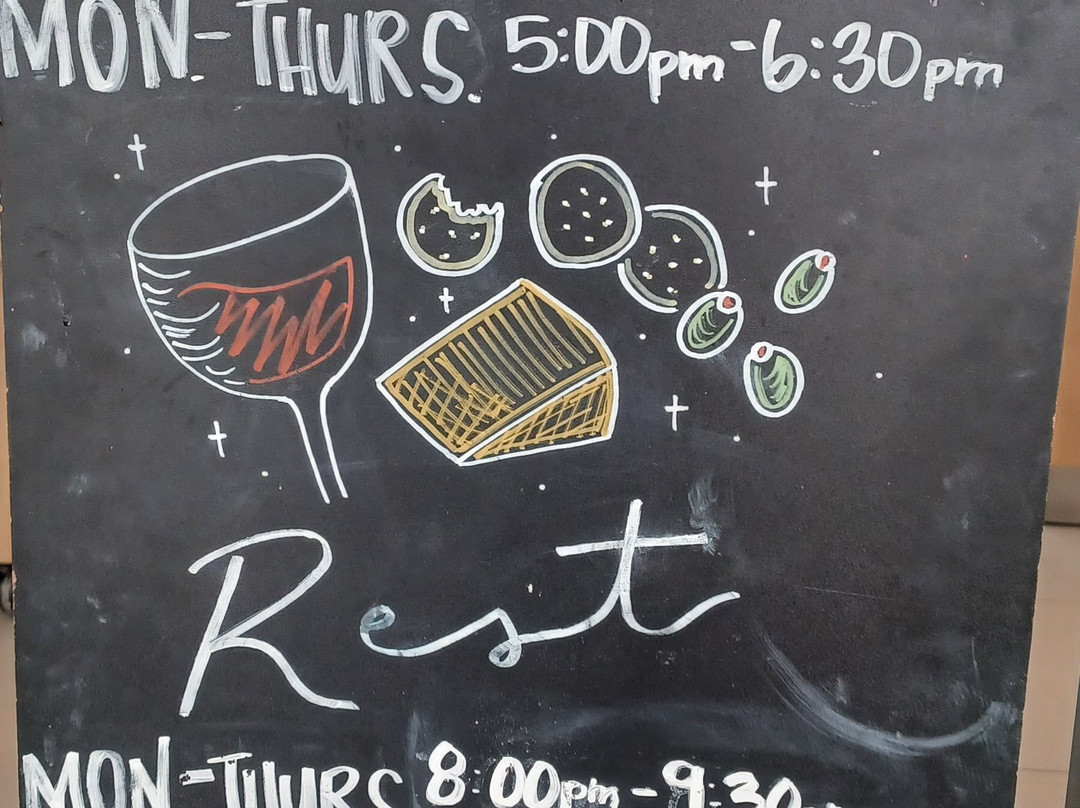 MON-THURS. 5:00pm-6:30pm
Rest
MON-THURS 8:00pm-9:30pm